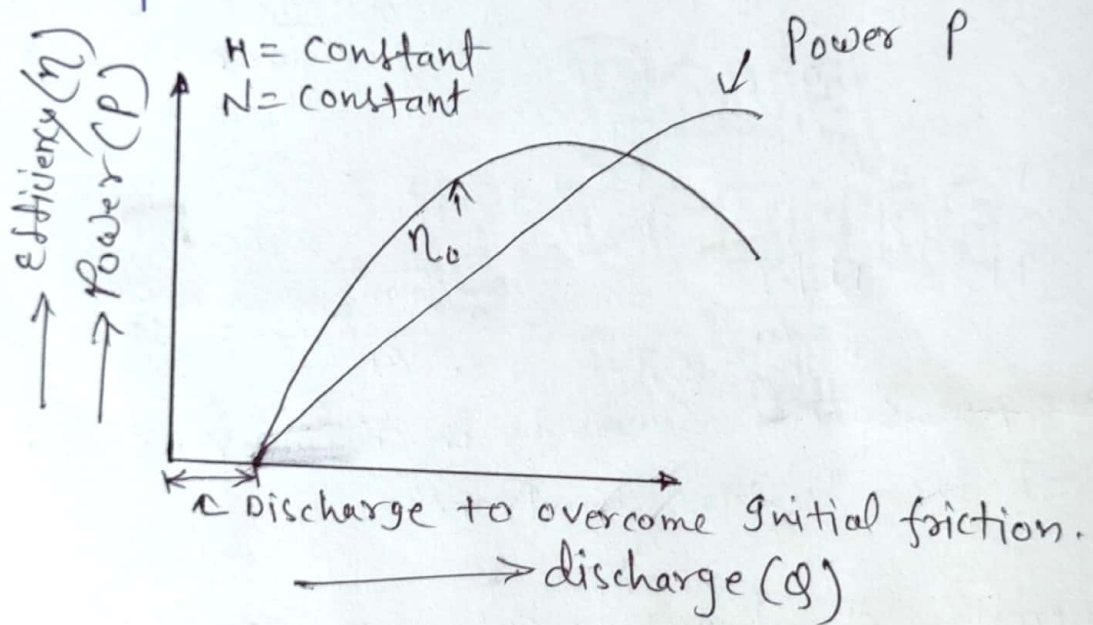 Efficiency (η)
Power (P)
H = Constant
N = Constant
Power P
η₀
Discharge to overcome Initial friction.
discharge (Q)